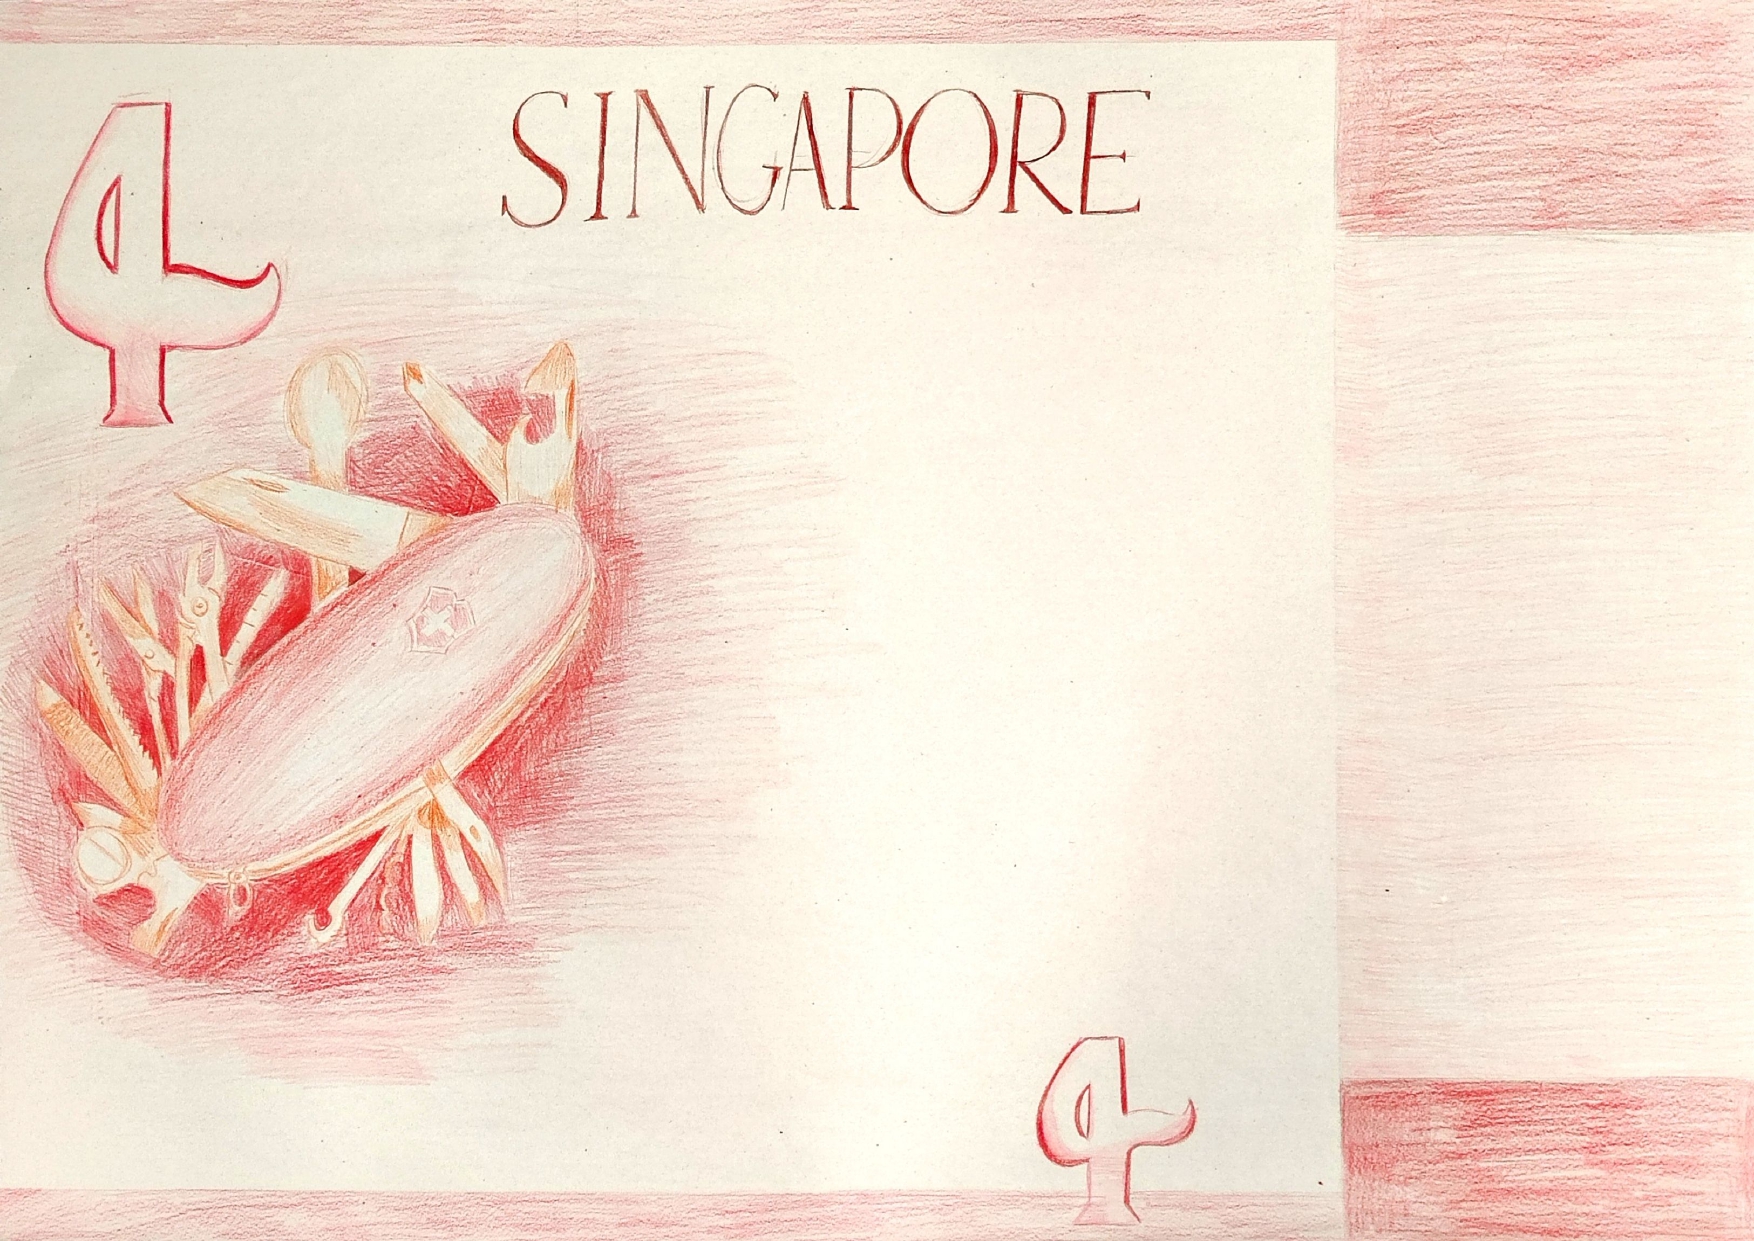 4
SINGAPORE
4